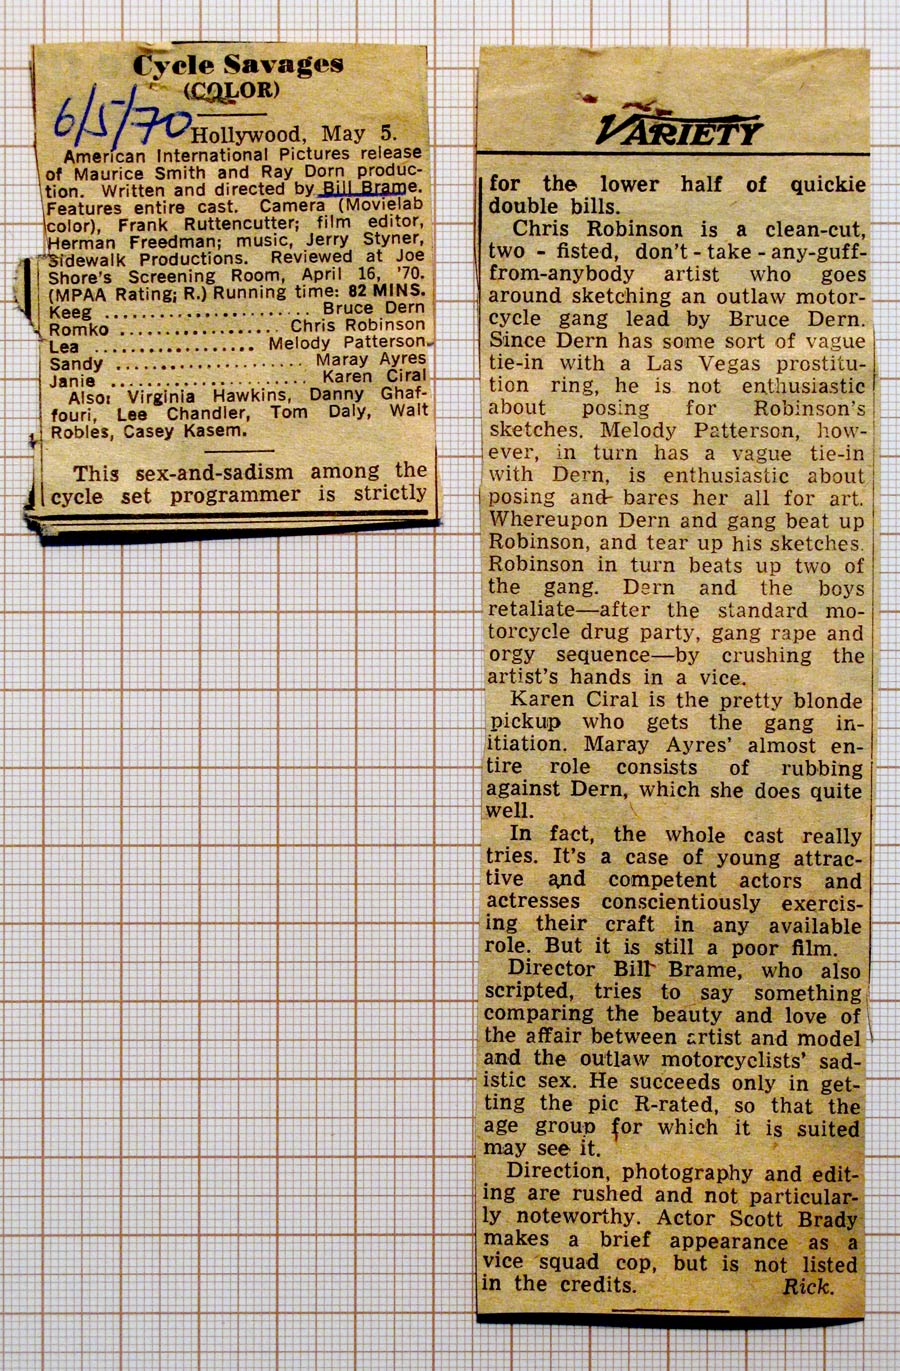 Cycle Savages
(COLOR)
6/5/70
Hollywood, May 5.
American International Pictures release
of Maurice Smith and Ray Dorn produc-
tion. Written and directed by Bill Brame.
Features entire cast. Camera (Movielab
color), Frank Ruttencutter; film editor,
Herman Freedman; music, Jerry Styner,
Sidewalk Productions. Reviewed at Joe
Shore's Screening Room, April 16, '70.
(MPAA Rating; R.) Running time: 82 MINS.
Keeg ...................... Bruce Dern
Romko ................ Chris Robinson
Lea ................. Melody Patterson
Sandy .................... Maray Ayres
Janie ..................... Karen Ciral
Also: Virginia Hawkins, Danny Ghaf-
fouri, Lee Chandler, Tom Daly, Walt
Robles, Casey Kasem.
This sex-and-sadism among the
cycle set programmer is strictly
VARIETY
for the lower half of quickie
double bills.
Chris Robinson is a clean-cut,
two - fisted, don't - take - any-guff-
from-anybody artist who goes
around sketching an outlaw motor-
cycle gang lead by Bruce Dern.
Since Dern has some sort of vague
tie-in with a Las Vegas prostitu-
tion ring, he is not enthusiastic
about posing for Robinson's
sketches. Melody Patterson, how-
ever, in turn has a vague tie-in
with Dern, is enthusiastic about
posing and bares her all for art.
Whereupon Dern and gang beat up
Robinson, and tear up his sketches.
Robinson in turn beats up two of
the gang. Dern and the boys
retaliate—after the standard mo-
torcycle drug party, gang rape and
orgy sequence—by crushing the
artist's hands in a vice.
Karen Ciral is the pretty blonde
pickup who gets the gang in-
itiation. Maray Ayres' almost en-
tire role consists of rubbing
against Dern, which she does quite
well.
In fact, the whole cast really
tries. It's a case of young attrac-
tive and competent actors and
actresses conscientiously exercis-
ing their craft in any available
role. But it is still a poor film.
Director Bill Brame, who also
scripted, tries to say something
comparing the beauty and love of
the affair between artist and model
and the outlaw motorcyclists' sad-
istic sex. He succeeds only in get-
ting the pic R-rated, so that the
age group for which it is suited
may see it.
Direction, photography and edit-
ing are rushed and not particular-
ly noteworthy. Actor Scott Brady
makes a brief appearance as a
vice squad cop, but is not listed
in the credits. Rick.